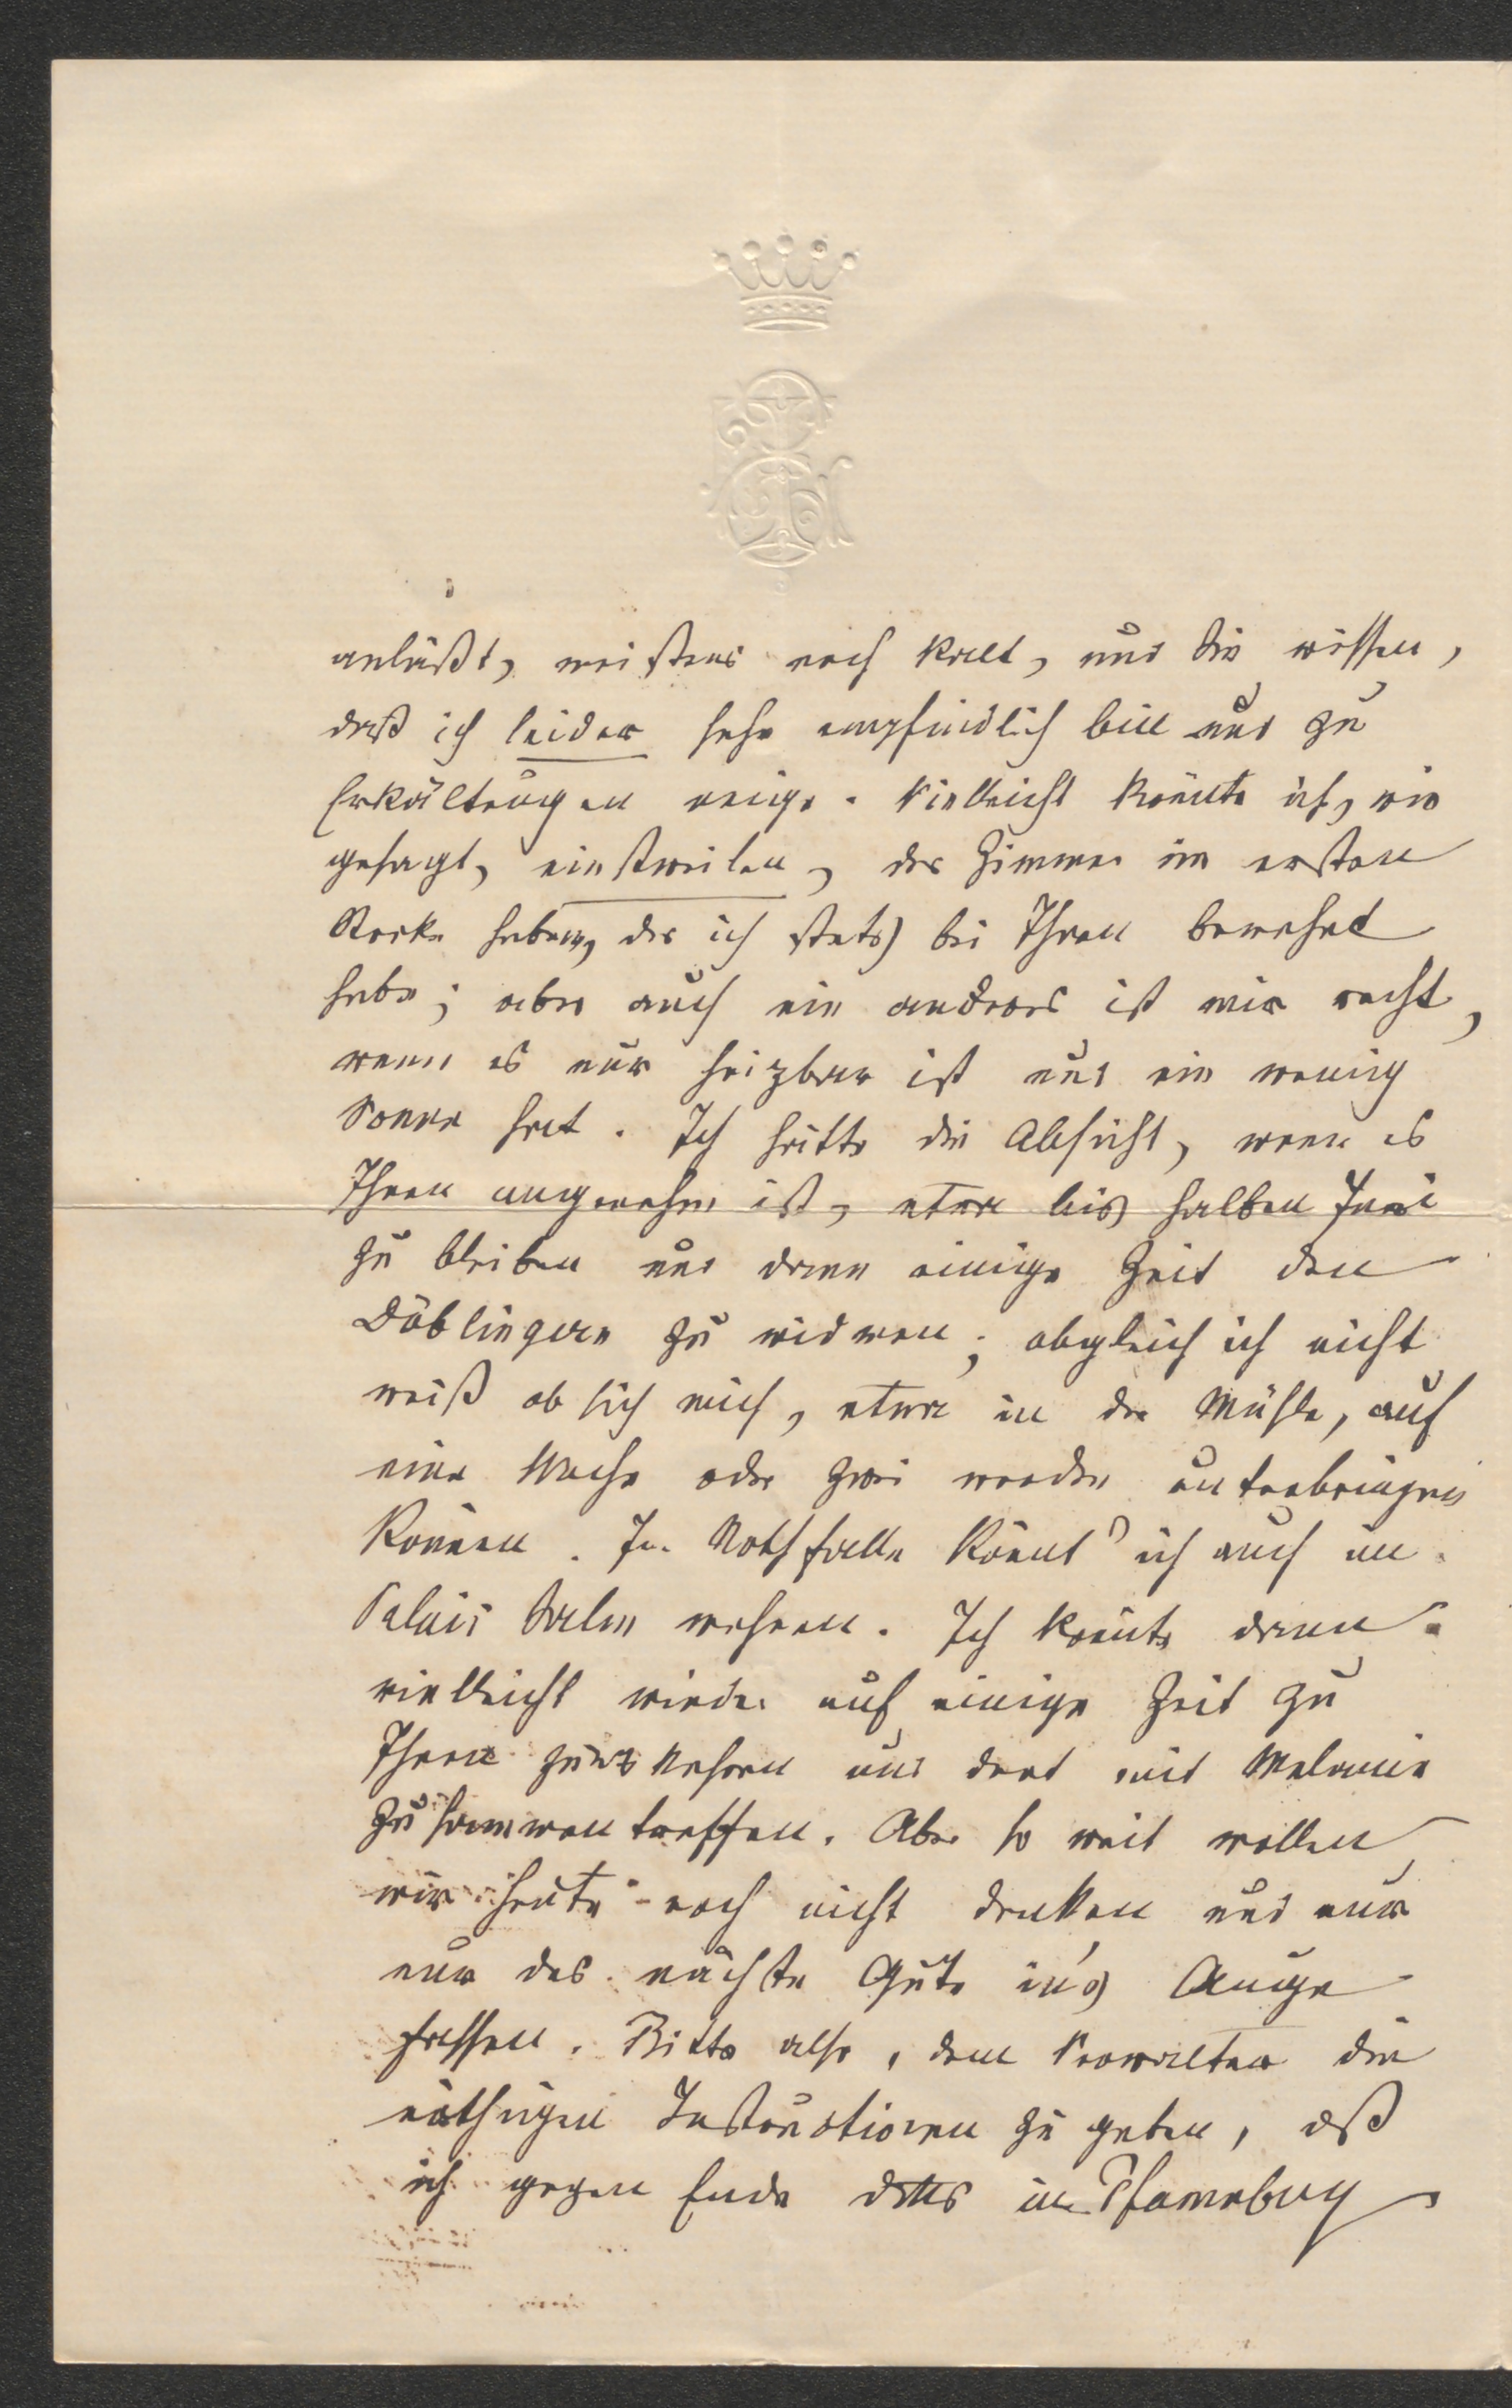 anläßt, meistens noch kalt, und Sie wissen,
daß ich leider sehr empfindlich bin und zu
Erkältungen neige. Vielleicht könnte ich, wie
gesagt, einstweilen, das Zimmer im ersten
Stocke haben, das ich stets bei Ihnen bewohnt
habe; aber auch ein anderes ist mir recht,
wenn es nur heizbar ist und ein wenig
Sonne hat. Ich hätte die Absicht, wenn es
Ihnen angenehm ist, etwa bis halben Juni
zu bleiben und dann einige Zeit den
Döblingern zu widmen; obgleich ich nicht
weiß ob sich mich, etwa in der Mühle, auf
eine Woche oder zwei werden unterbringen
können. Im Nothfalle könnt' ich auch im
Palais Salm wohnen. Ich könnte dann
vielleicht wieder auf einige Zeit zu
Ihnen zurückkehren und dort mit Melanie
zusammentreffen. Aber so weit wollen
wir heute noch nicht denken und nur
nur das nächste Gute in's Auge
fassen. Bitte also, dem Verwalter die
nöthigen Instructionen zu geben, daß
ich gegen Ende dMs in Pfannberg